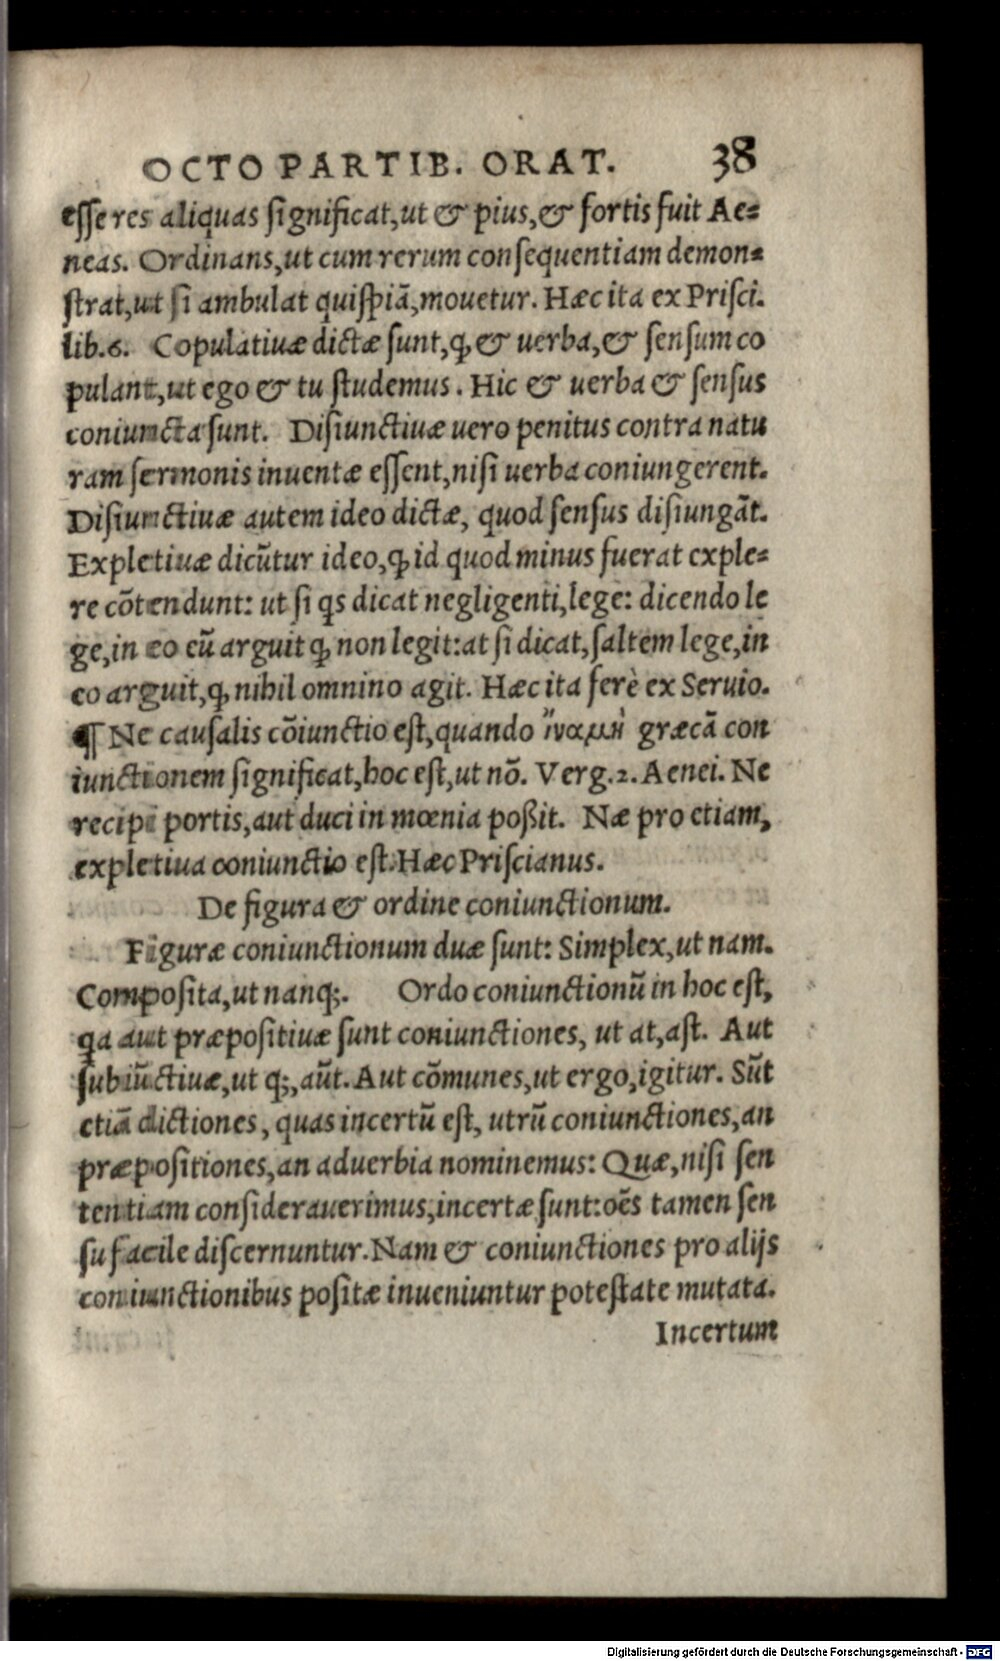 OCTO PARTIB. ORAT. 38
esse res aliquas significat,ut & pius,& fortis fuit Ae=
neas. Ordinans,ut cum rerum consequentiam demon=
strat,ut si ambulat quispiā,mouetur. Hæc ita ex Prisci.
lib.6. Copulatiuæ dictæ sunt,ꝙ & uerba,& sensum co
pulant,ut ego & tu studemus. Hic & uerba & sensus
coniuncta sunt. Disiunctiuæ uero penitus contra natu
ram sermonis inuentæ essent,nisi uerba coniungerent.
Disiunctiuæ autem ideo dictæ, quod sensus disiungāt.
Expletiuæ dicūtur ideo,ꝙ id quod minus fuerat exple=
re cōtendunt: ut si qs dicat negligenti,lege: dicendo le
ge,in eo eū arguit ꝙ non legit:at si dicat,saltem lege,in
eo arguit,ꝙ nihil omnino agit. Hæc ita ferè ex Seruio.
¶ Ne causalis cōiunctio est,quando ἵναμὴ græcā con
iunctionem significat,hoc est,ut nō. Verg.2. Aenei. Ne
recipi portis,aut duci in mœnia poßit. Næ pro etiam,
expletiua coniunctio est.Hæc Priscianus.
De figura & ordine coniunctionum.
Figuræ coniunctionum duæ sunt: Simplex,ut nam.
Composita,ut nanq;. Ordo coniunctionū in hoc est,
qa aut præpositiuæ sunt coniunctiones, ut at,ast. Aut
subiūctiuæ,ut q;,aūt. Aut cōmunes,ut ergo,igitur. Sūt
etiā dictiones, quas incertū est, utrū coniunctiones,an
præpositiones,an aduerbia nominemus: Quæ,nisi sen
tentiam considerauerimus,incertæ sunt:oēs tamen sen
su facile discernuntur.Nam & coniunctiones pro alijs
coniunctionibus positæ inueniuntur potestate mutata.
Incertum
Digitalisierung gefördert durch die Deutsche Forschungsgemeinschaft - DFG